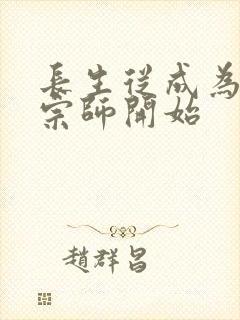 長生從成為
宗師開始
趙群昌